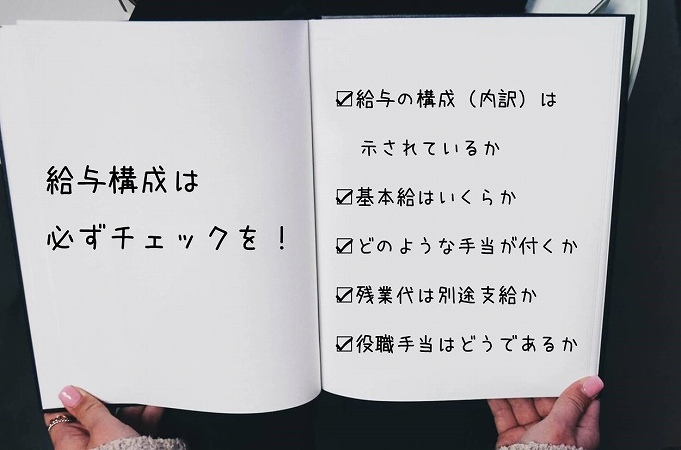 給与構成は
必ずチェックを！
☑給与の構成（内訳）は
示されているか
☑基本給はいくらか
☑どのような手当が付くか
☑残業代は別途支給か
☑役職手当はどうであるか